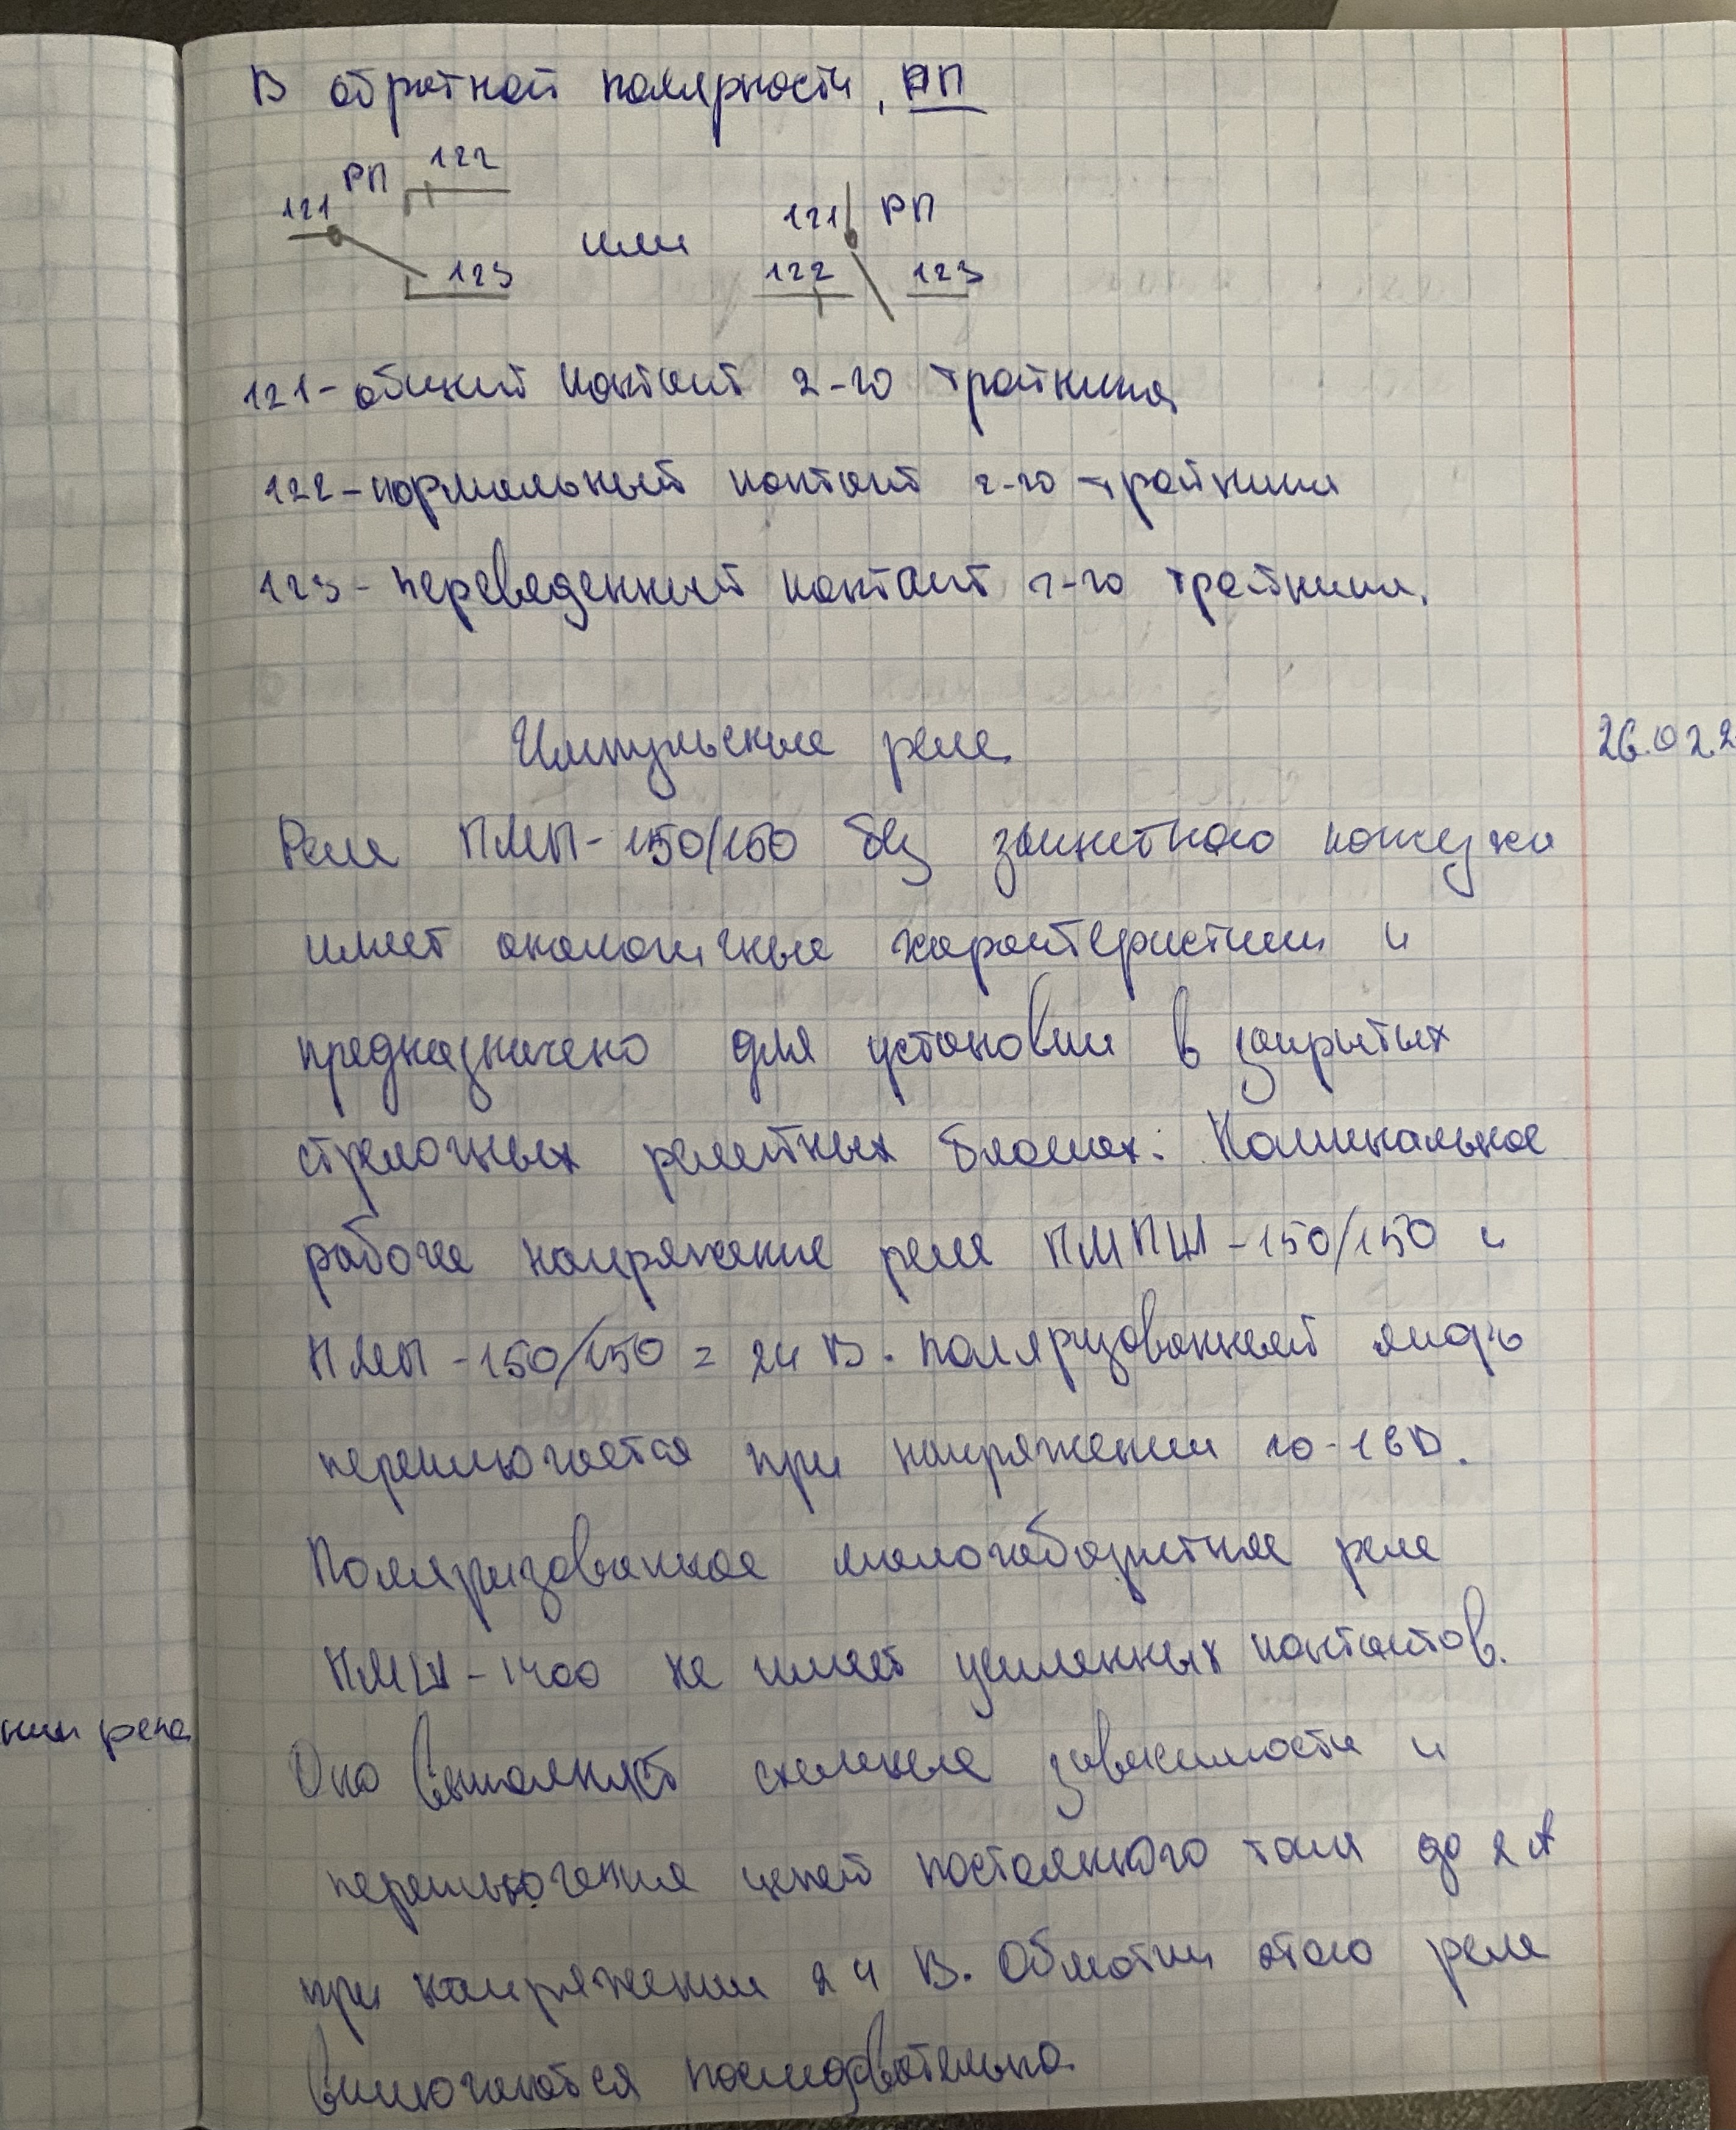 В обратной полярности, РП
РП 122
121 121 РП
или
123 122 123
121 - общий контакт 2-го тройника
122 - нормальный контакт 2-го тройника
123 - переведенный контакт 2-го тройника.
Импульсные реле 26.02.2
Реле ПМП - 150/150 без защитного кожуха
имеет аналогичные характеристики и
предназначено для установки в закрытых
стрелочных релейных блоках. Номинальное
рабочее напряжение реле ПМПШ - 150/150 и
ПМП - 150/150 = 24 В. поляризованный якорь
переключается при напряжении 10 - 16 В.
Поляризованное малогабаритное реле
ПМШ - 1400 не имеет усиленных контактов.
нии реле
Оно выполняет схемные зависимости и
переключение цепей постоянного тока до 2 А
при напряжении 24 В. Обмотки этого реле
включаются последовательно.